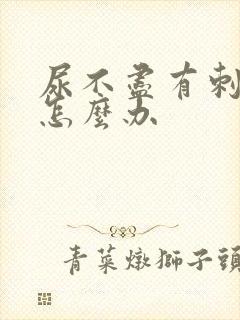 尿不盡有刺
怎麼办
青菜燉獅子頭